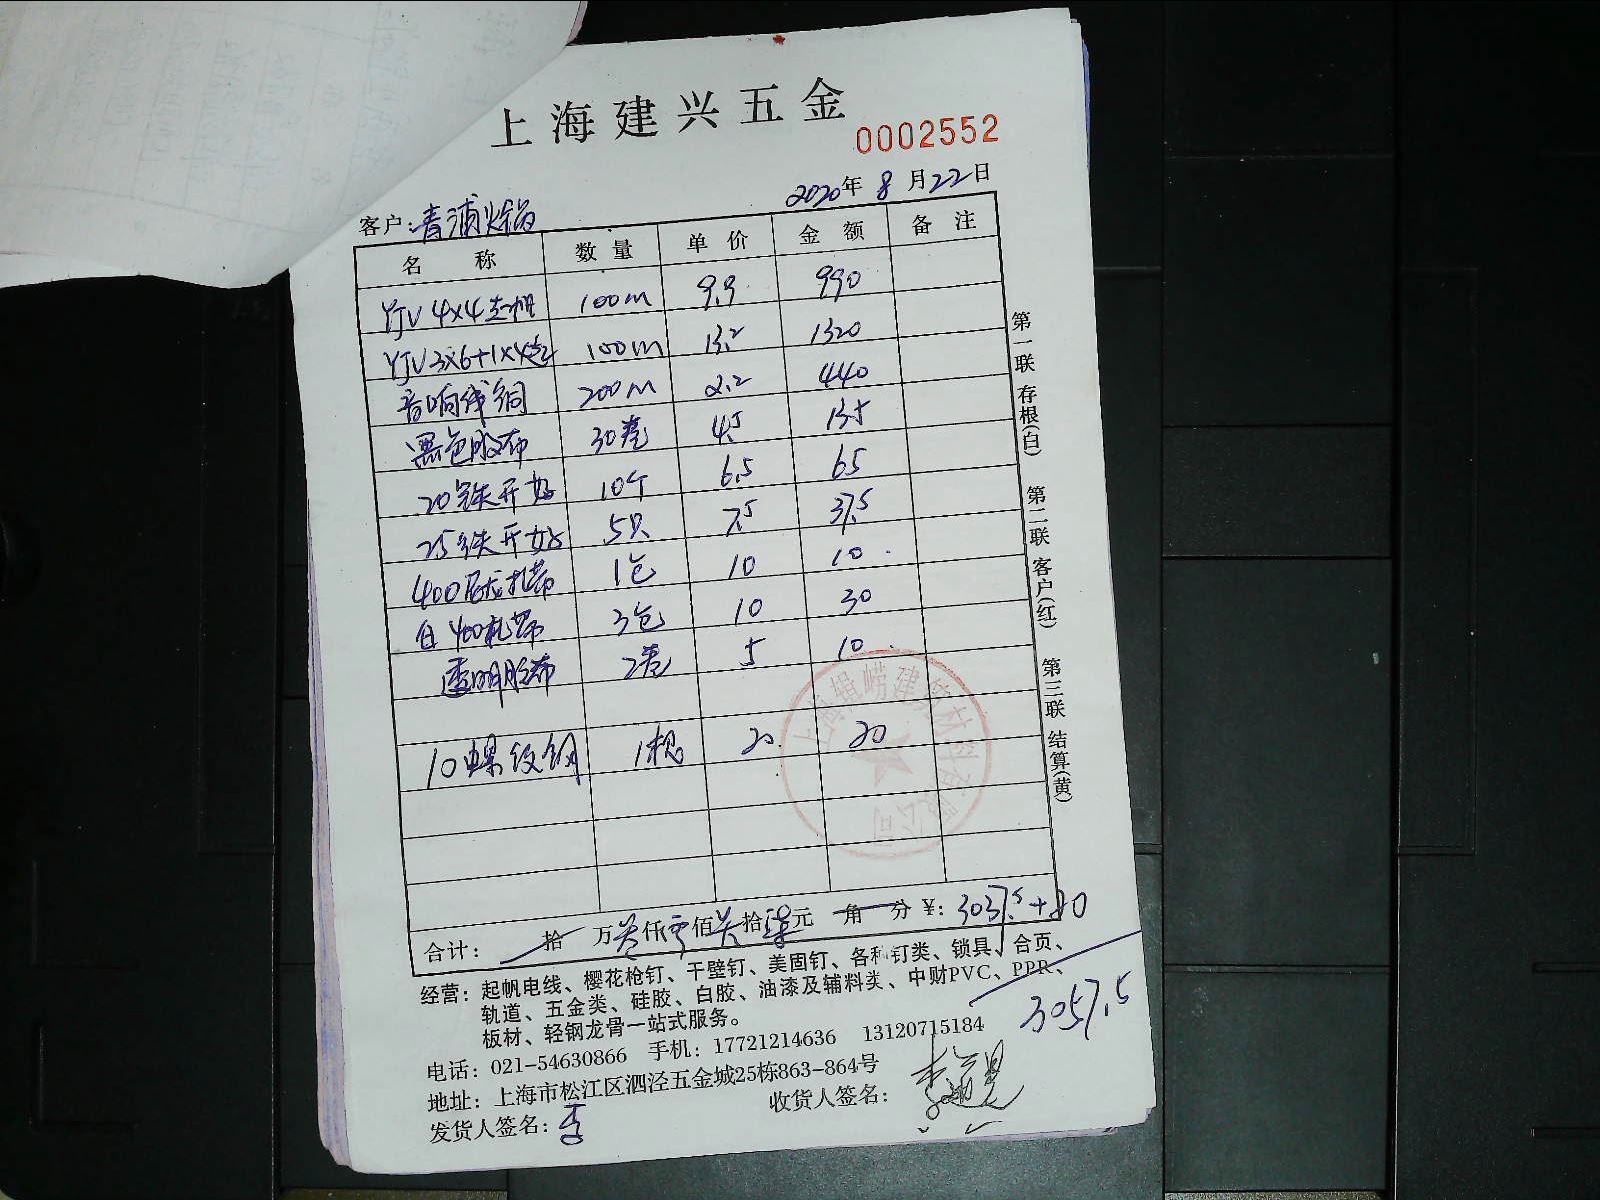 上海建兴五金
0002552
2020年 8 月 22 日
客户: 青浦火锅
名 称 数 量 单 价 金 额 备 注
YJV 4×4 起帆 100m 9.9 990
YJV 3×6+1×4起 100m 13.2 1320
音响线铜 200m 2.2 440
黑色胶布 30卷 4.5 135
20铁开好 10个 6.5 65
25铁开好 5只 7.5 37.5
400尼龙扎带 1包 10 10
白400扎带 3包 10 30
透明胶布 2卷 5 10
10螺纹钢 1根 20 20
合计: 拾 万叁仟零佰 拾柒元 角 分 ¥: 3037.5+20
3057.5
经营: 起帆电线、樱花枪钉、干壁钉、美固钉、各种钉类、锁具、合页、
轨道、五金类、硅胶、白胶、油漆及辅料类、中财PVC、PPR、
板材、轻钢龙骨一站式服务。
电话: 021-54630866 手机: 17721214636 13120715184
地址: 上海市松江区泗泾五金城25栋863-864号
发货人签名: 李 收货人签名:
第一联 存根(白) 第二联 客户(红) 第三联 结算(黄)